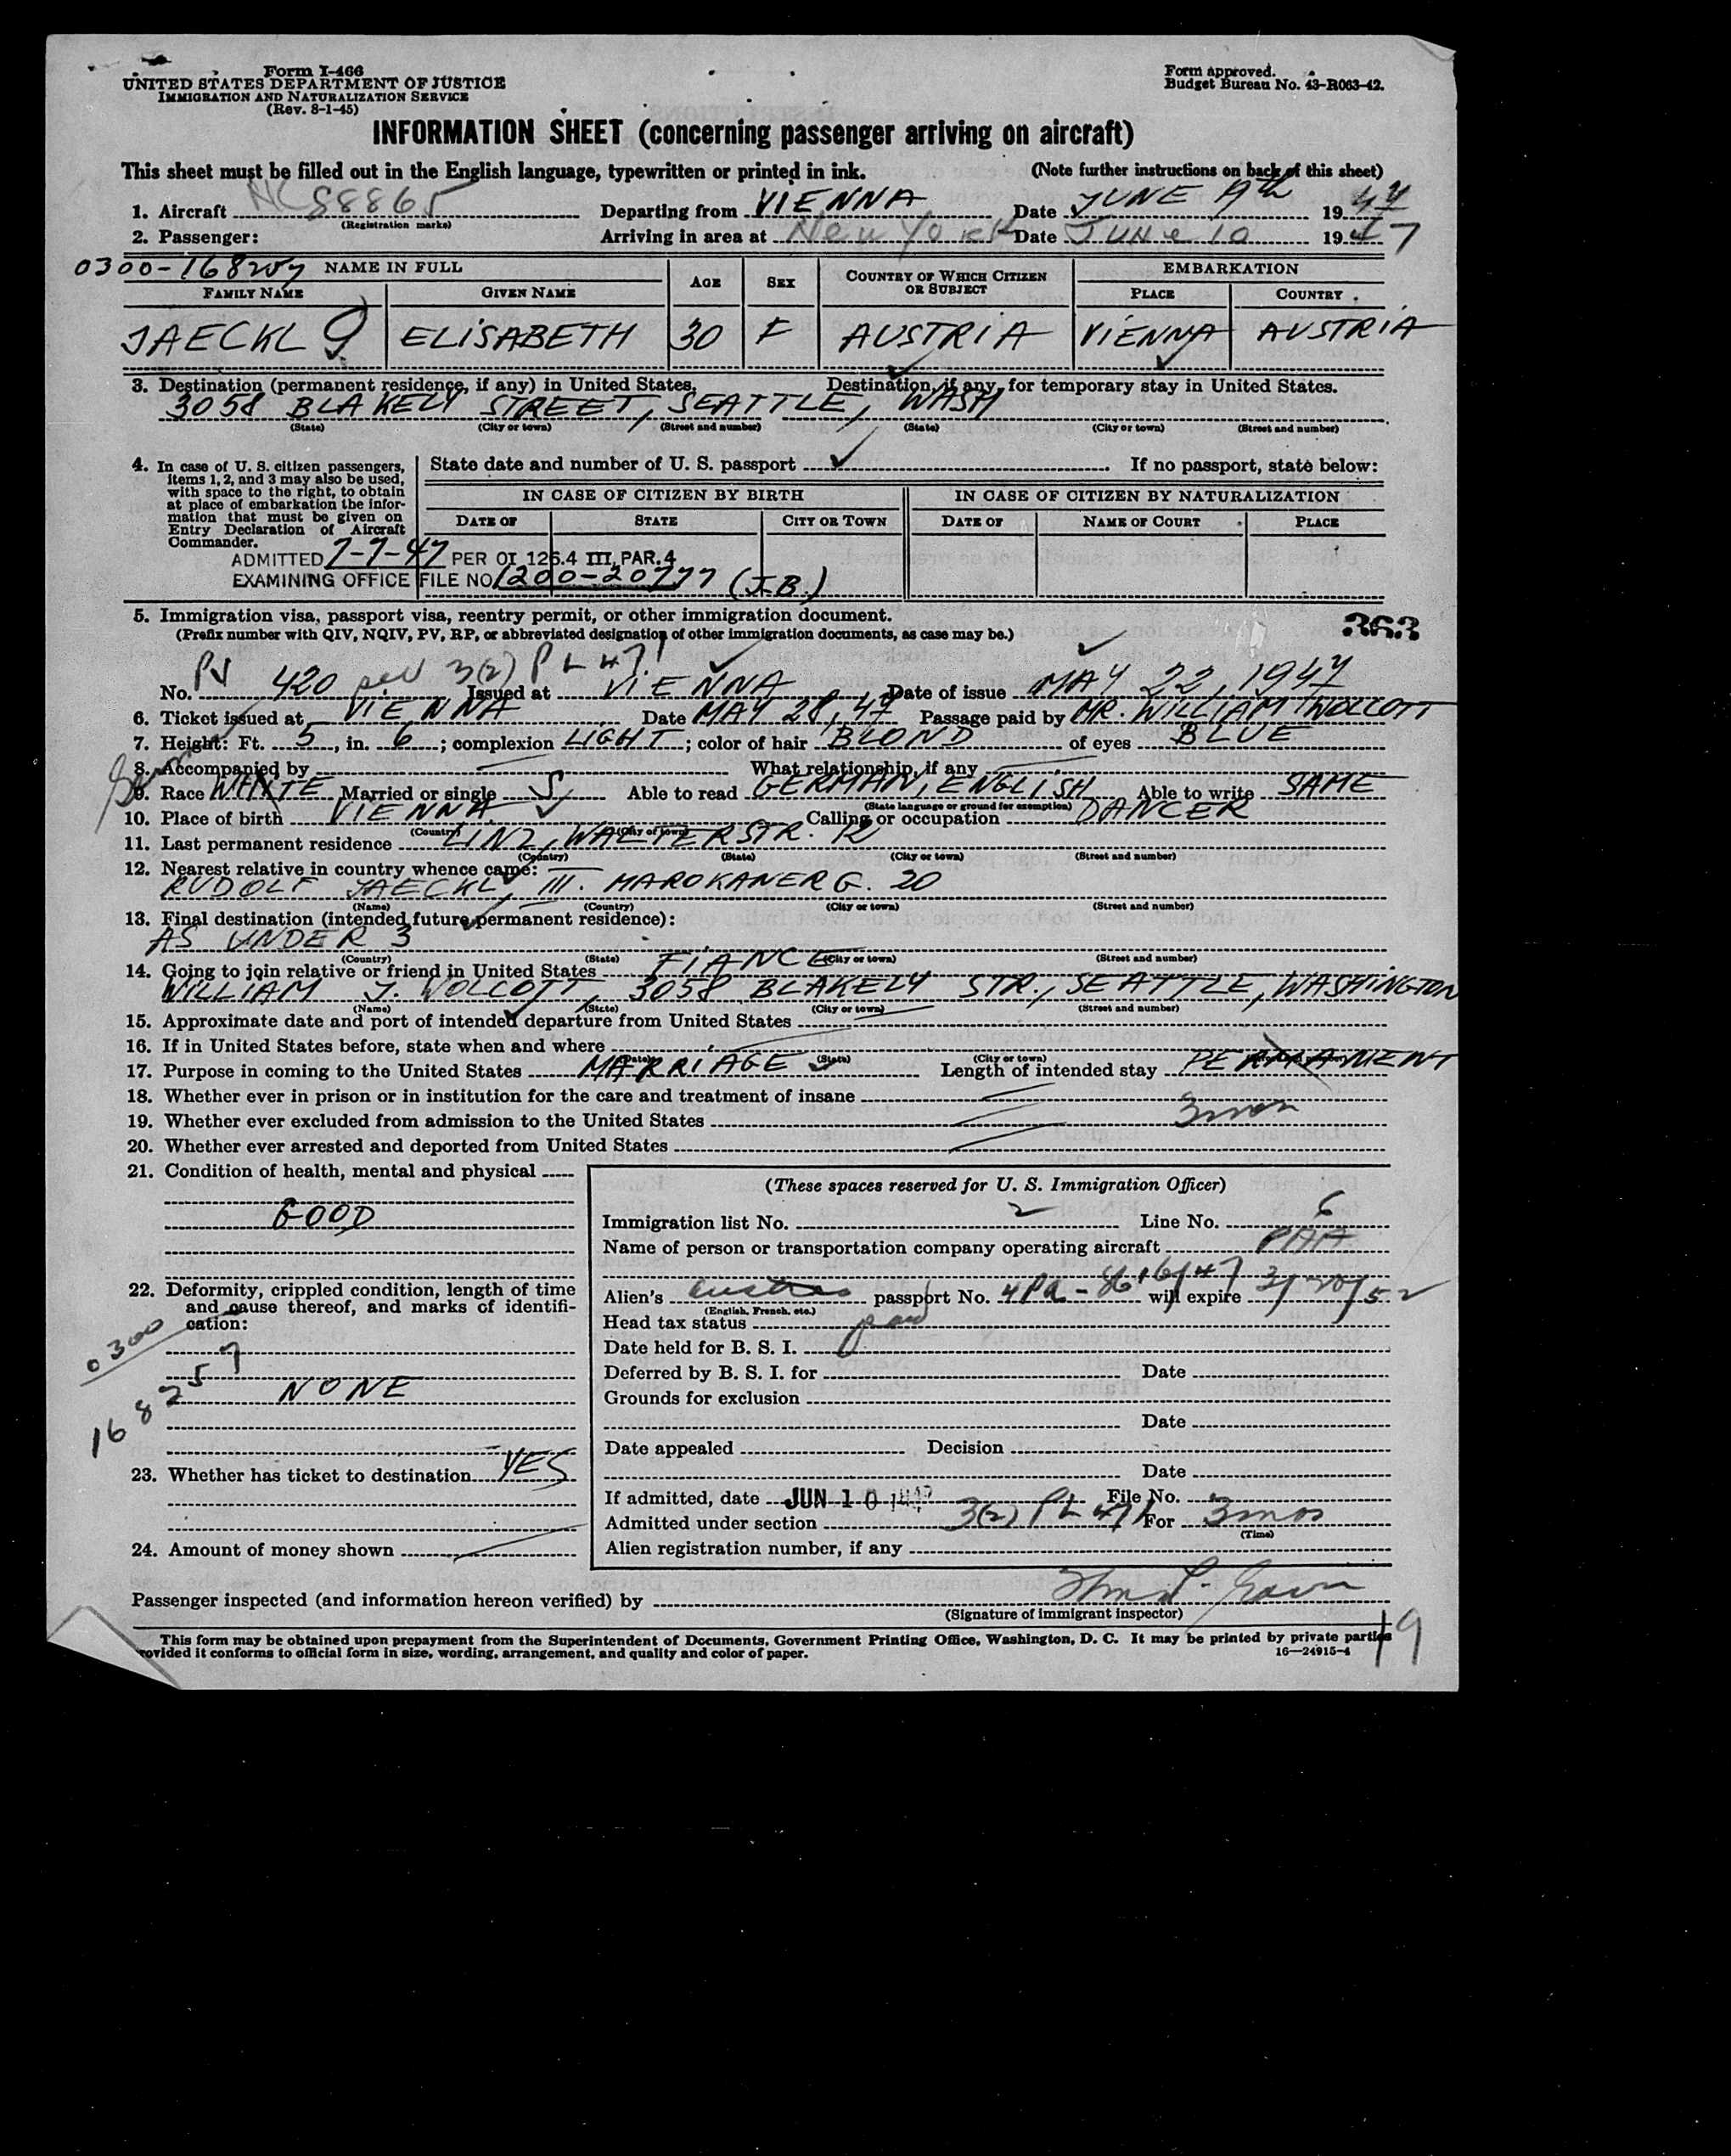 Form I-466
UNITED STATES DEPARTMENT OF JUSTICE
IMMIGRATION AND NATURALIZATION SERVICE
(Rev. 8-1-45)
Form approved.
Budget Bureau No. 43-R063-42.
INFORMATION SHEET (concerning passenger arriving on aircraft)
This sheet must be filled out in the English language, typewritten or printed in ink. (Note further instructions on back of this sheet)
1. Aircraft NC 88865 Departing from VIENNA Date JUNE 9th 1947
(Registration marks)
2. Passenger: Arriving in area at New York Date JUNE 10 1947
0300-168257 NAME IN FULL AGE SEX COUNTRY OF WHICH CITIZEN OR SUBJECT EMBARKATION
FAMILY NAME GIVEN NAME PLACE COUNTRY
JAECKL ELISABETH 30 F AUSTRIA VIENNA AUSTRIA
3. Destination (permanent residence, if any) in United States. Destination, if any, for temporary stay in United States.
3058 BLAKELY STREET, SEATTLE, WASH
(State) (City or town) (Street and number) (State) (City or town) (Street and number)
4. In case of U. S. citizen passengers, items 1, 2, and 3 may also be used, with space to the right, to obtain at place of embarkation the information that must be given on Entry Declaration of Aircraft Commander.
State date and number of U. S. passport If no passport, state below:
IN CASE OF CITIZEN BY BIRTH IN CASE OF CITIZEN BY NATURALIZATION
DATE OF STATE CITY OR TOWN DATE OF NAME OF COURT PLACE
ADMITTED 7-7-47 PER OI 126.4 III, PAR. 4
EXAMINING OFFICE FILE NO. 1200-20777 (J.B.)
5. Immigration visa, passport visa, reentry permit, or other immigration document. 363
(Prefix number with QIV, NQIV, PV, RP, or abbreviated designation of other immigration documents, as case may be.)
No. PV 420 sec 3(2) PL 471 Issued at VIENNA Date of issue MAY 22, 1947
6. Ticket issued at VIENNA Date MAY 28, 47 Passage paid by MR. WILLIAM WOLCOTT
7. Height: Ft. 5, in. 6; complexion LIGHT; color of hair BLOND of eyes BLUE
8. Accompanied by What relationship, if any
9. Race WHITE Married or single S Able to read GERMAN, ENGLISH Able to write SAME
(State language or ground for exemption)
10. Place of birth VIENNA Calling or occupation DANCER
(Country) (City or town)
11. Last permanent residence LINZ, WALTERSTR. 12
(Country) (State) (City or town) (Street and number)
12. Nearest relative in country whence came:
RUDOLF JAECKL, III. MAROKANERG. 20
(Name) (Country) (City or town) (Street and number)
13. Final destination (intended future permanent residence):
AS UNDER 3
(Country) (State) (City or town) (Street and number)
14. Going to join relative or friend in United States FIANCE
WILLIAM J. WOLCOTT, 3058 BLAKELY STR., SEATTLE, WASHINGTON
(Name) (State) (City or town) (Street and number)
15. Approximate date and port of intended departure from United States
16. If in United States before, state when and where
(Date) (State) (City or town)
17. Purpose in coming to the United States MARRIAGE Length of intended stay PERMANENT
18. Whether ever in prison or in institution for the care and treatment of insane
19. Whether ever excluded from admission to the United States 3 mos
20. Whether ever arrested and deported from United States
21. Condition of health, mental and physical
GOOD
22. Deformity, crippled condition, length of time and cause thereof, and marks of identification:
0300
168257
NONE
23. Whether has ticket to destination YES
24. Amount of money shown
(These spaces reserved for U. S. Immigration Officer)
Immigration list No. 2 Line No. 6
Name of person or transportation company operating aircraft PAA
Alien's passport No. will expire 3/20/52
(English, French, etc.)
Head tax status paid
Date held for B. S. I.
Deferred by B. S. I. for Date
Grounds for exclusion
Date
Date appealed Decision
Date
If admitted, date JUN 10 1947 File No.
Admitted under section 3(2) PL 471 For 3 mos
(Time)
Alien registration number, if any
Passenger inspected (and information hereon verified) by
(Signature of immigrant inspector)
This form may be obtained upon prepayment from the Superintendent of Documents, Government Printing Office, Washington, D. C. It may be printed by private parties
provided it conforms to official form in size, wording, arrangement, and quality and color of paper. 16—24915-4
19